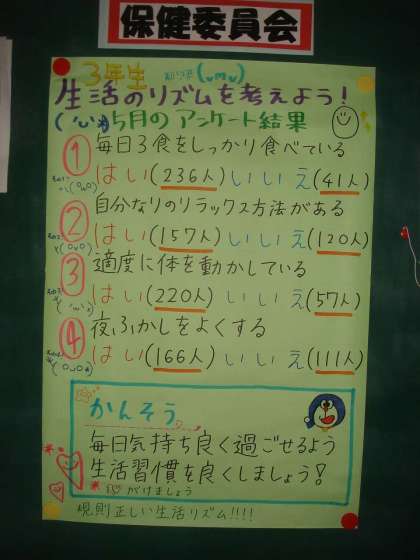 保健委員会
3年生
生活のリズムを考えよう!
5月のアンケート結果
① 毎日3食をしっかり食べている
はい(236人) いいえ(41人)
② 自分なりのリラックス方法がある
はい(157人) いいえ(120人)
③ 適度に体を動かしている
はい(220人) いいえ(57人)
④ 夜ふかしをよくする
はい(166人) いいえ(111人)
かんそう
毎日気持ち良く過ごせるよう
生活習慣を良くしましょう!
がけましょう
規則正しい生活リズム!!!!